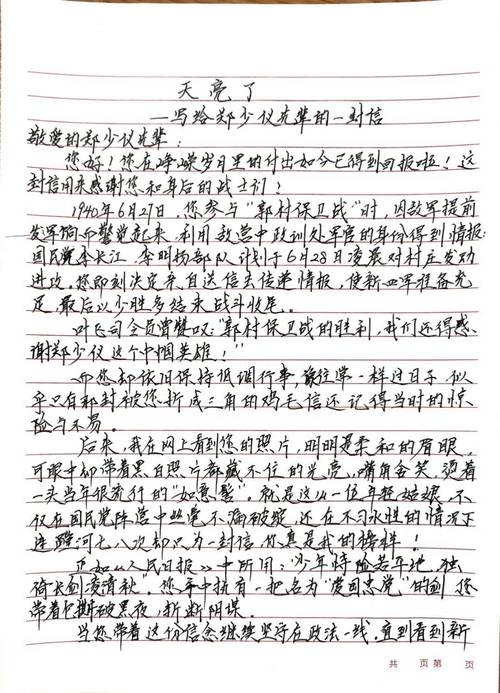 天亮了
—写给郑少仪先辈的一封信
敬爱的郑少仪先辈：
您好！您在峥嵘岁月里的付出如今已得到回报啦！这
封信用来感谢您和身后的战士们！
1940年6月27日，您参与“郭村保卫战”时，因敌军提前
发军饷而警觉起来，利用敌营中政训处军官的身份得到情报：
国民党李长江、李明扬部队计划于6月28日凌晨对村庄发动
进攻。您即刻决定亲自送信去传递情报，使新四军准备充
足，最后以少胜多结束战斗收尾。
叶飞司令员曾赞叹：“郭村保卫战的胜利，我们还得感
谢郑少仪这个巾帼英雄！”
而您却依旧保持低调行事，像往常一样过日子，似
乎只有那封被您折成三角的鸡毛信还记得当时的惊
险与不易。
后来，我在网上看到您的照片，明明是柔和的眉眼，
可眼中却带着黑白照片都藏不住的光亮，嘴角含笑，烫着
一头当年很流行的“如意髻”。就是这么一位年轻姑娘，不
仅在国民党阵营中丝毫不漏破绽，还在不习水性的情况下
连蹚河七八次却只为一封信，您真是我的榜样！
正如《人民日报》中所用：“少年恃险若平地，独
倚长剑凌清秋”。您手中执有一把名为“爱国忠党”的剑，您
带着它撕破黑夜，斩断阴谋。
当您带着这份信念继续坚守在政法一线，直到看到新
共 页 第 页